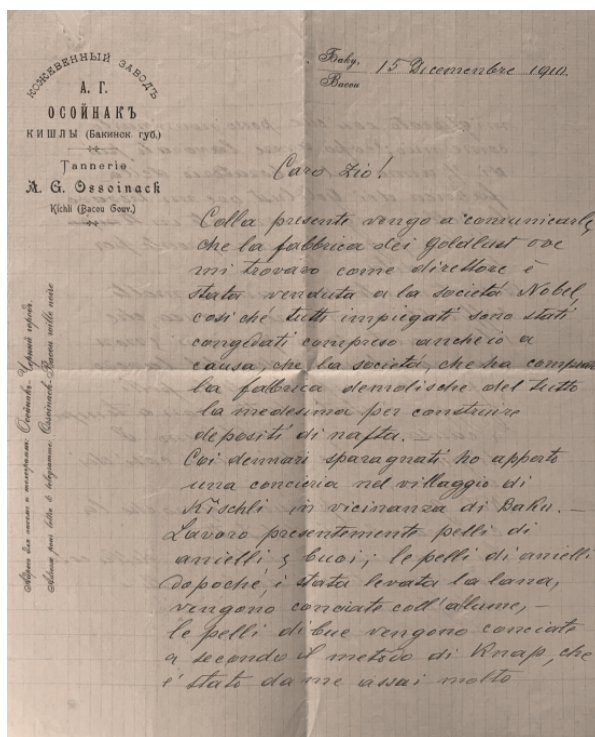 КОЖЕВЕННЫЙ ЗАВОДЪ
А. Г.
ОСОЙНАКЪ
КИШЛЫ (Бакинск. губ.)
Tannerie
A. G. Ossoinack
Kichli (Bacou Gouv.)
Адресъ для писемъ и телеграммъ: Осойнакъ. Черный городъ.
Adresse pour lettres & telegrammes: Ossoinack-Bacou ville noire
Баку
Bacou
15 Decemenbre 1910.
Caro Zio!
Colla presente vengo a comunicarle,
che la fabbrica dei Goldlust ove
mi trovavo come direttore è
stata venduta a la società Nobel,
cosi ché tutti impiegati sono stati
congidati compreso anche io a
causa, che la società, che ha comprato
la fabbrica demolische del tutto
la medesima per construire
depositi di nafta.
Coi dennari sparagnati ho apperto
una conceria nel villaggio di
Kischli in vicinanza di Baku. —
Lavoro presentemente pelli di
anielli e buoi; le pelli di anielli
dopoché, i stata levata la lana,
vengono conciate coll'alume, —
le pelli di bue vengono conciate
a secondo il metodo di Knap, che
é stato da me assai molto